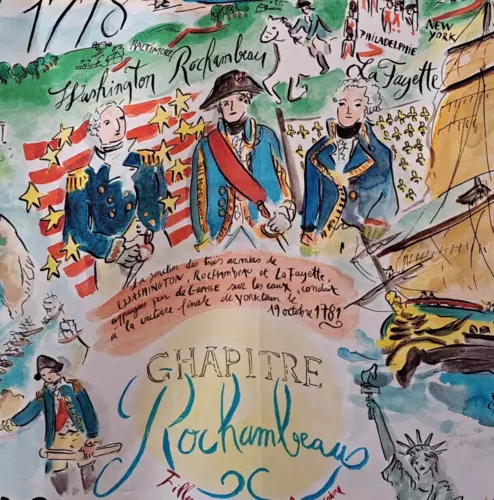 1778
BALTIMORE
PHILADELPHIE
NEW
YORK
Washington
Rochambeau
La Fayette
La jonction des trois armées de
WASHINGTON, ROCHAMBEAU et LA FAYETTE,
appuyées par de GRASSE sur les eaux, conduit
à la victoire finale de YORKtown le
19 octobre 1781
CHAPITRE
Rochambeau